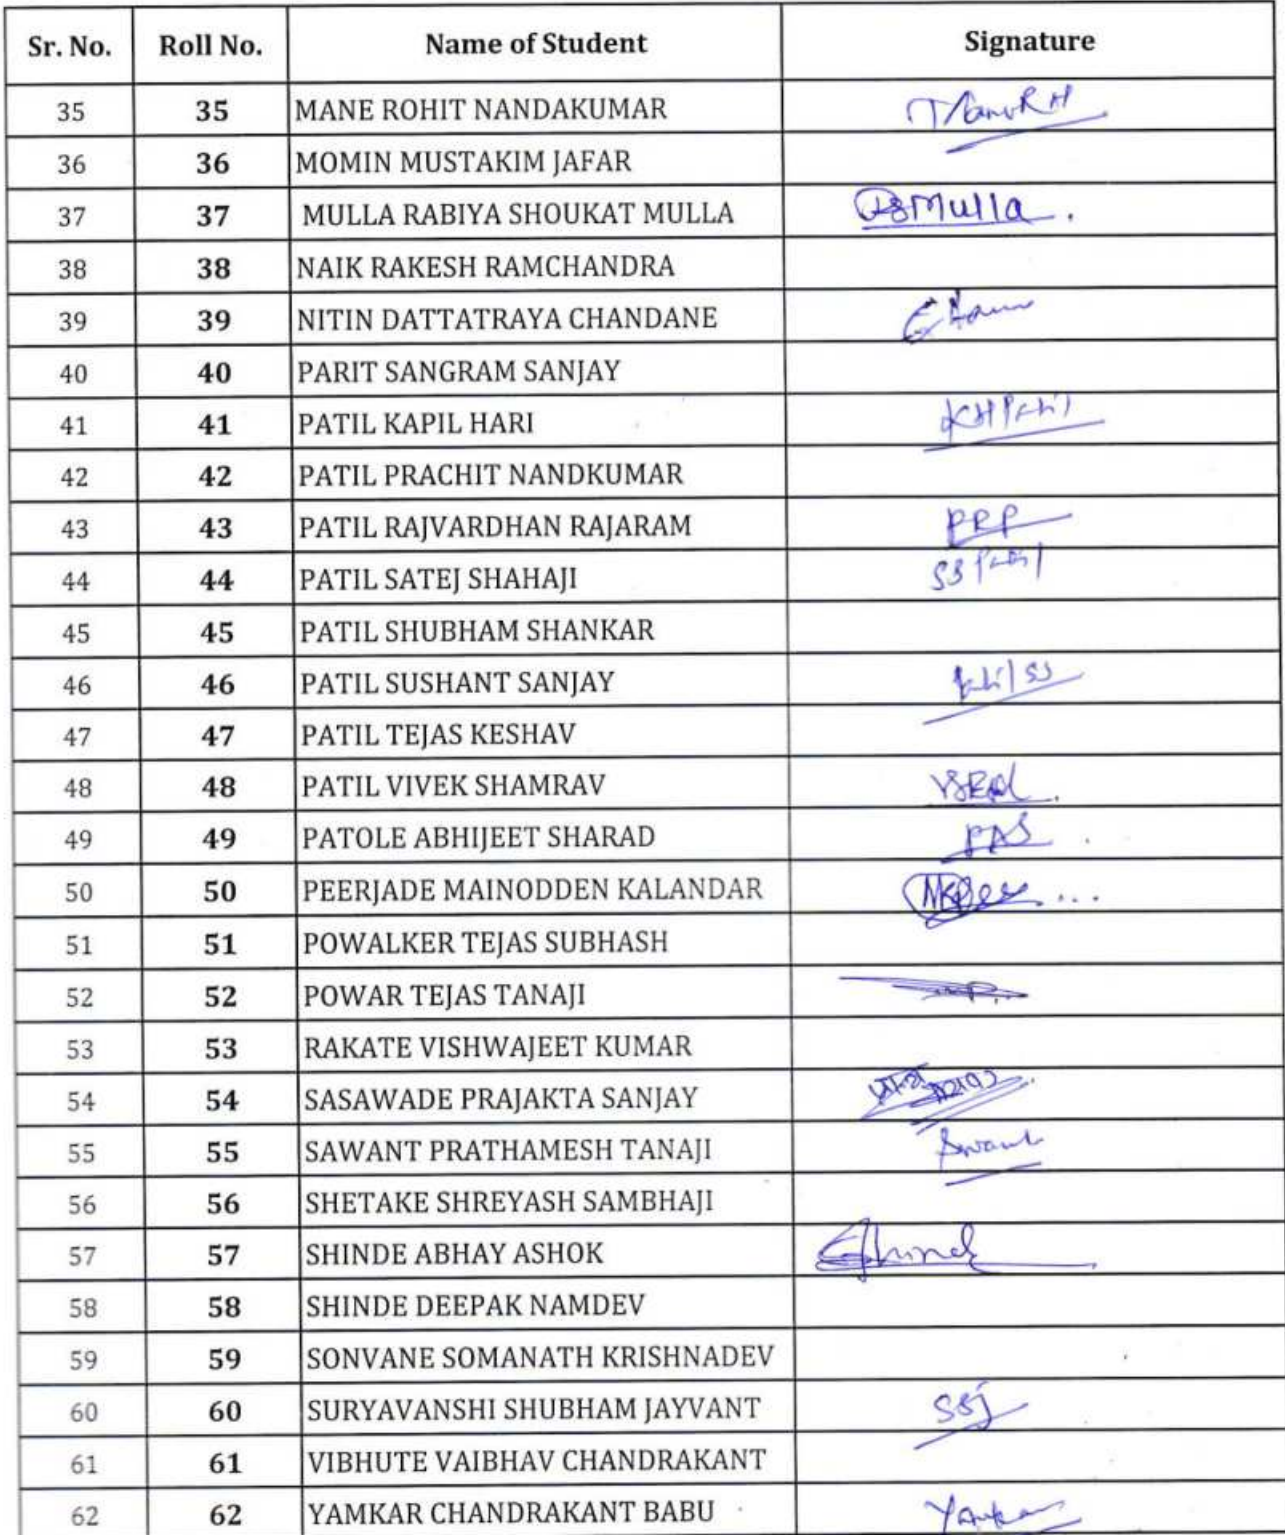 Sr. No. Roll No. Name of Student Signature
35 35 MANE ROHIT NANDAKUMAR
36 36 MOMIN MUSTAKIM JAFAR
37 37 MULLA RABIYA SHOUKAT MULLA RSMulla.
38 38 NAIK RAKESH RAMCHANDRA
39 39 NITIN DATTATRAYA CHANDANE
40 40 PARIT SANGRAM SANJAY
41 41 PATIL KAPIL HARI KHPatil
42 42 PATIL PRACHIT NANDKUMAR
43 43 PATIL RAJVARDHAN RAJARAM PRP
44 44 PATIL SATEJ SHAHAJI SSPatil
45 45 PATIL SHUBHAM SHANKAR
46 46 PATIL SUSHANT SANJAY Patil SS
47 47 PATIL TEJAS KESHAV
48 48 PATIL VIVEK SHAMRAV
49 49 PATOLE ABHIJEET SHARAD PAS
50 50 PEERJADE MAINODDEN KALANDAR
51 51 POWALKER TEJAS SUBHASH
52 52 POWAR TEJAS TANAJI
53 53 RAKATE VISHWAJEET KUMAR
54 54 SASAWADE PRAJAKTA SANJAY
55 55 SAWANT PRATHAMESH TANAJI
56 56 SHETAKE SHREYASH SAMBHAJI
57 57 SHINDE ABHAY ASHOK
58 58 SHINDE DEEPAK NAMDEV
59 59 SONVANE SOMANATH KRISHNADEV
60 60 SURYAVANSHI SHUBHAM JAYVANT SSJ
61 61 VIBHUTE VAIBHAV CHANDRAKANT
62 62 YAMKAR CHANDRAKANT BABU Yamkar